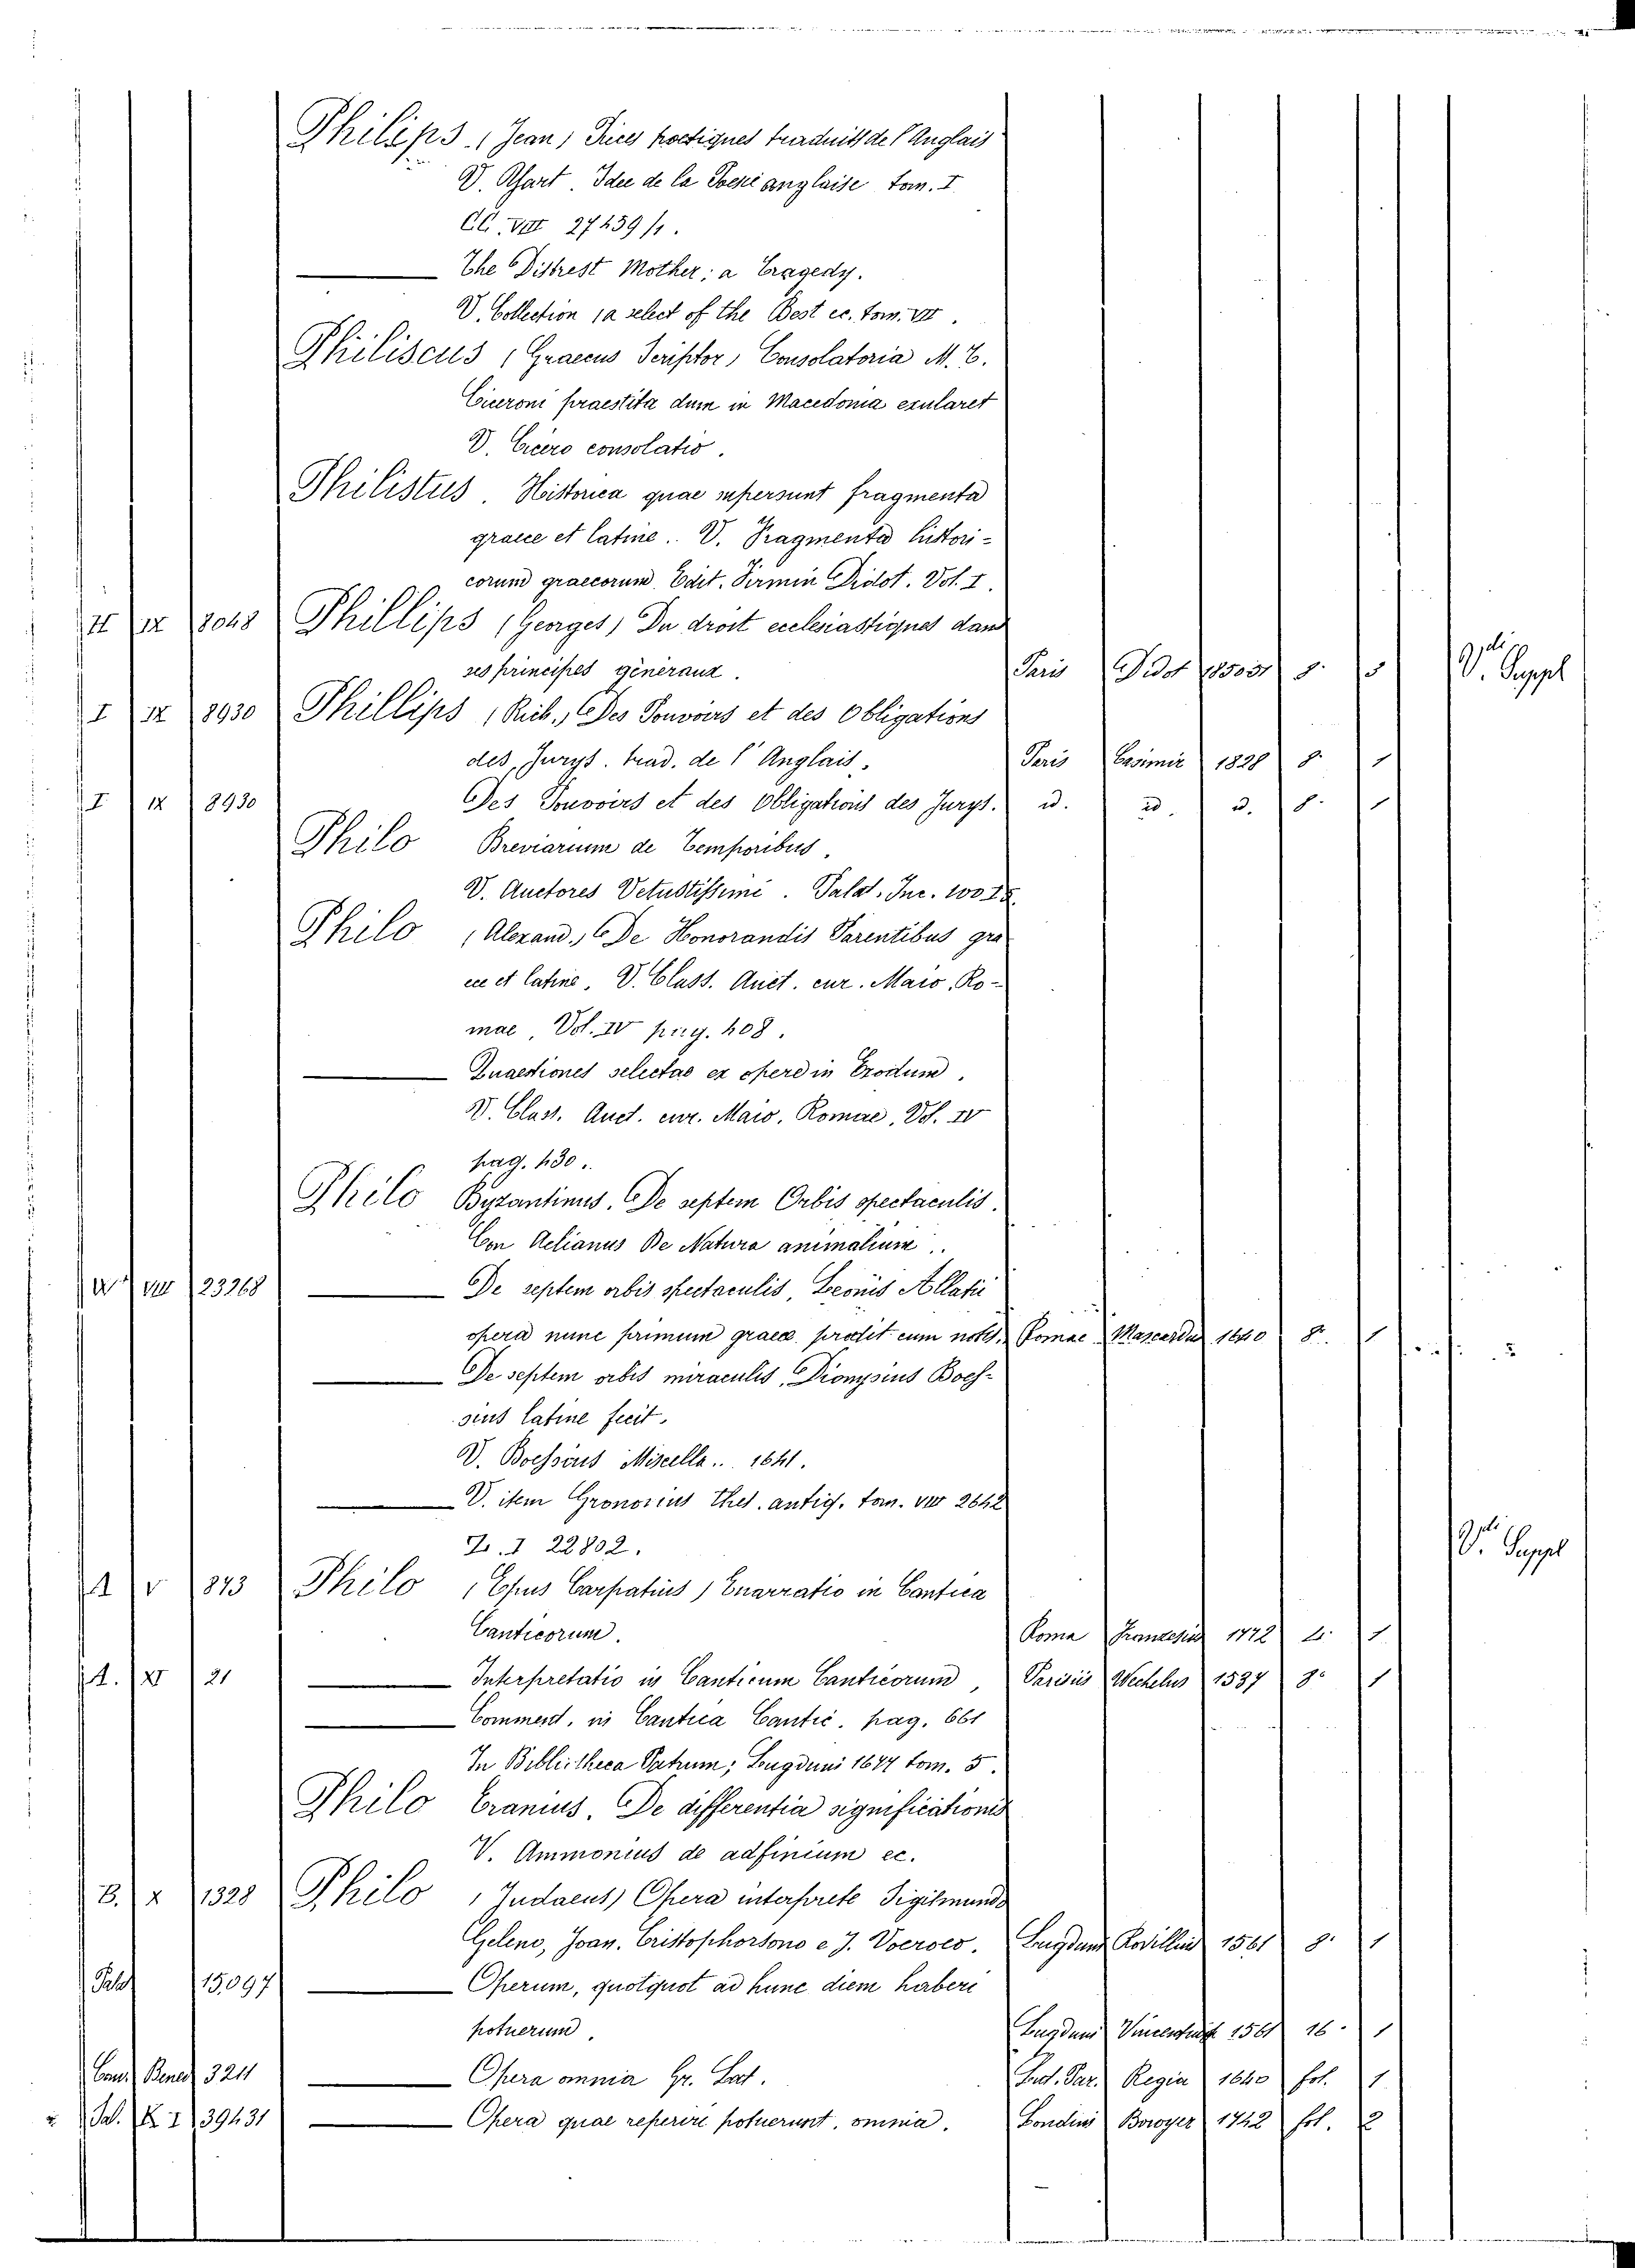 Philips. (Jean) Pices poetiques traduits de l'Anglais
V. Yart. Idee de la Poesie anglaise tom. I.
CC. VIII 27439/1.
The Distrest Mother; a Tragedy.
V. Collection (a select of the Best ec. tom. VII.
Philiscus (Graecus Scriptor) Consolatoria M. T.
Ciceroni praestita dum in Macedonia exularet
V. Cicero consolatio.
Philistus. Historica quae supersunt fragmenta
graece et latine. V. Fragmenta histori-
corum graecorum Edit. Firmin Didot. Vol. I.
II IX 8048 Phillips (Georges) Du droit ecclesiastiques dans
ses principes generaux. Paris Didot 1850 8. V. Suppl
I IX 8930 Phillips (Rich.) Des Pouvoirs et des Obligations
des Jurys. trad. de l'Anglais. Paris Casimir 1828 8. 1
I IX 8930 Des Pouvoirs et des Obligations des Jurys. id. id. id. 8. 1
Philo Breviarium de Temporibus.
V. Auctores Vetustissimi. Palat. Inc.
Philo (Alexand.) De Honorandis Parentibus gra
ece et latine. V. Class. Auct. cur. Maio, Ro-
mae, Vol. IV pag. 408.
Quaestiones selectae ex opere in Exodum.
V. Class. Auct. cur. Maio, Romae, Vol. IV
pag. 430.
Philo Byzantinus. De septem Orbis spectaculis.
Con Aelianus De Natura animalium.
VIII 23268 De septem orbis spectaculis, Leonis Allatii
opera nunc primum graece prodit cum notis. Romae Mascardus 1640 8. 1
De septem orbis miraculis, Dionysius Boes-
sius latine fecit.
V. Boessius Miscella.. 1641.
V. item Gronovius Thes. antiq. tom. VIII 2642
Z. I 22802.
V. Suppl
A V 873 Philo (Epus Carpatius) Enarratio in Cantica
Canticorum. Roma Franzesius 1772 4. 1
A. XI 21 Interpretatio in Canticum Canticorum, Parisiis Wechelus 1537 8. 1
Comment. in Cantica Cantic. pag. 661
In Bibliotheca Patrum; Lugduni 1677 tom. 5.
Philo Eranius. De differentia significationis
V. Ammonius de adfinium ec.
B. X 1328 Philo (Judaeus) Opera interprete Sigismundo
Geleno, Joan. Cristophorsono e J. Voeroeo. Lugduni Rovillius 1561 8. 1
Palat 15,097 Operum, quotquot ad hunc diem haberi
potuerum. Lugduni 1561 16. 1
Bened 3211 Opera omnia Gr. Lat. Lut. Par. Regia 1640 fol. 1
39431 Opera quae reperire potuerunt. omnia. Londini Bowyer 1742 fol. 2